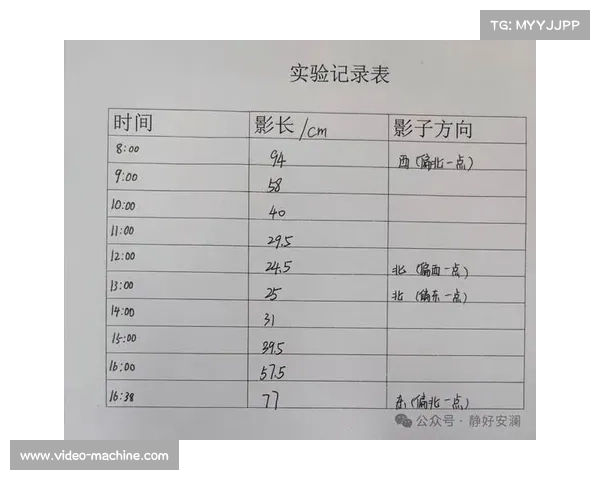 TG: MYYJJPP
实验记录表
时间 影长/cm 影子方向
8:00 94 西(偏北一点)
9:00 58
10:00 40
11:00 29.5
12:00 24.5 北(偏西一点)
13:00 25 北(偏东一点)
14:00 31
15:00 39.5
16:00 57.5
16:38 77 东(偏北一点)
公众号·静好安澜
www.video-machine.com